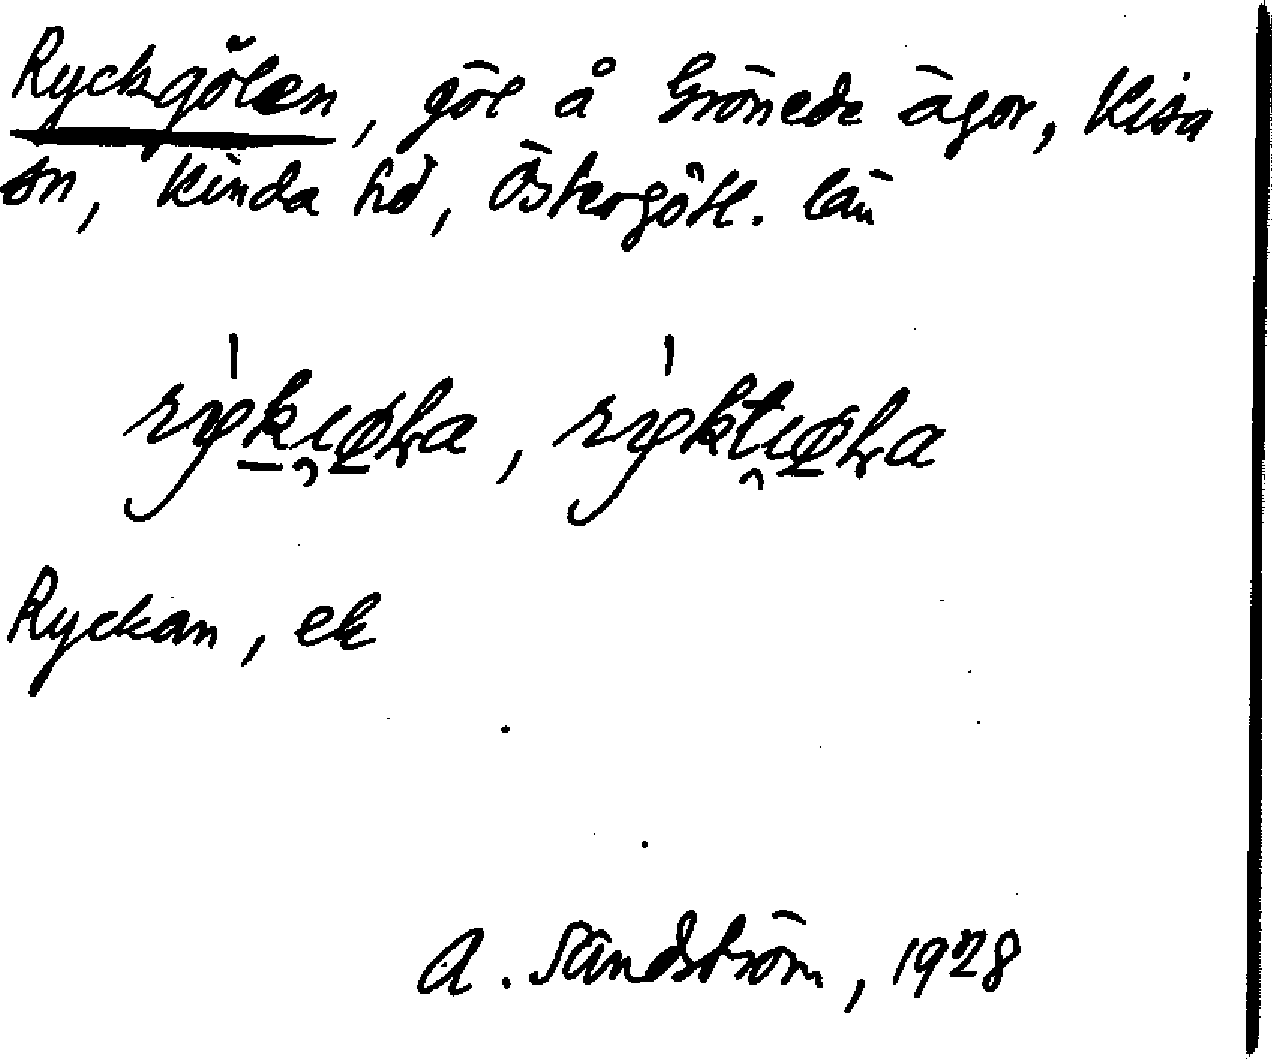 Ryckgölen, göl å Grönede ägor, Kisa
sn, Kinda hd, Östergötl. län
Ryckan, ek
A. Sandström, 1928